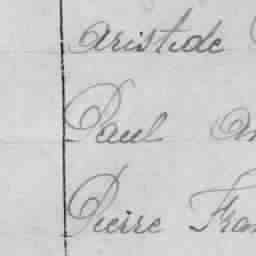 Aristide
Paul
Pierre